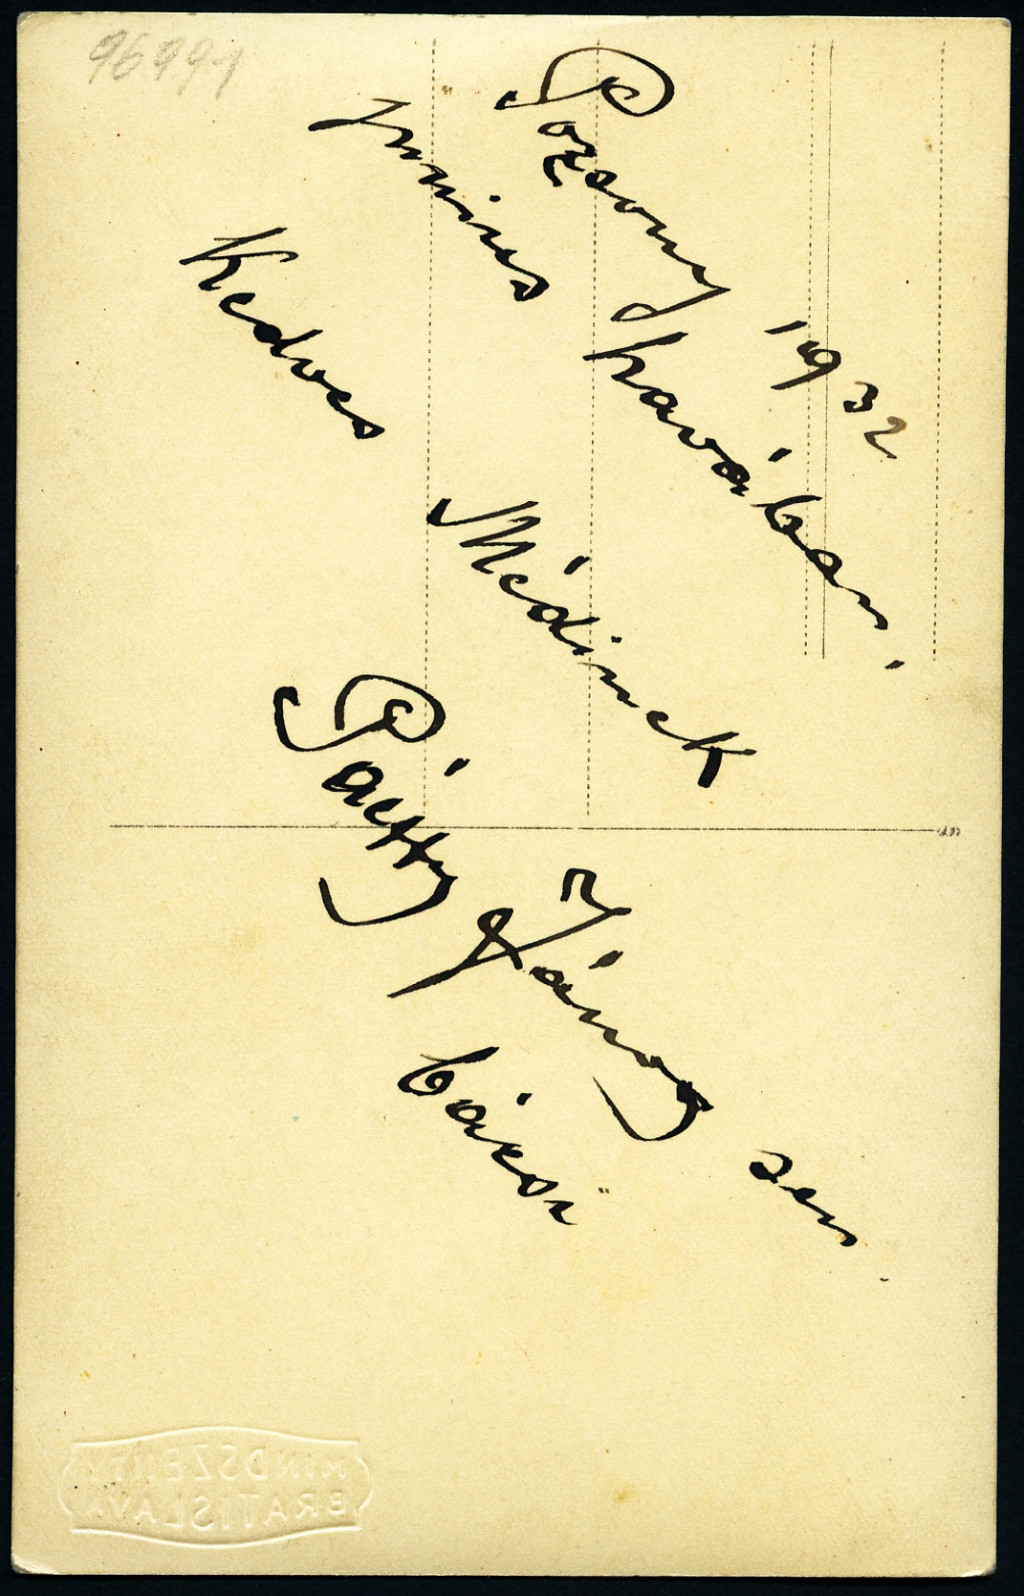 96991
Pozsony 1932
junius havában.
Kedves Médinek
Pálffy János sen.
bácsi
MINDSZENTY
BRATISLAVA